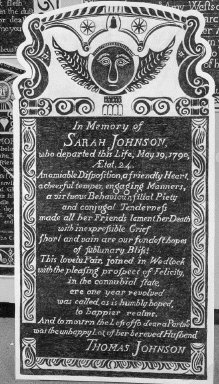 In Memory of
SARAH JOHNSON,
who departed this Life, May 19, 1790,
Ætat. 24.
An amiable Disposition, a friendly Heart,
a cheerful temper, engaging Manners,
a virtuous Behaviour, filial Piety
and conjugal Tenderness
made all her Friends lament her Death
with inexpressible Grief
Short and vain are our fondest hopes
of sublunary Bliss!
This lovely Pair, joined in Wedlock
with the pleasing prospect of Felicity,
in the connubial state,
ere one year revolved
was called, as is humbly hoped,
to happier realms,
And to mourn the Loss of so dear a Partner
was the unhappy Lot of her bereved Husband
THOMAS JOHNSON